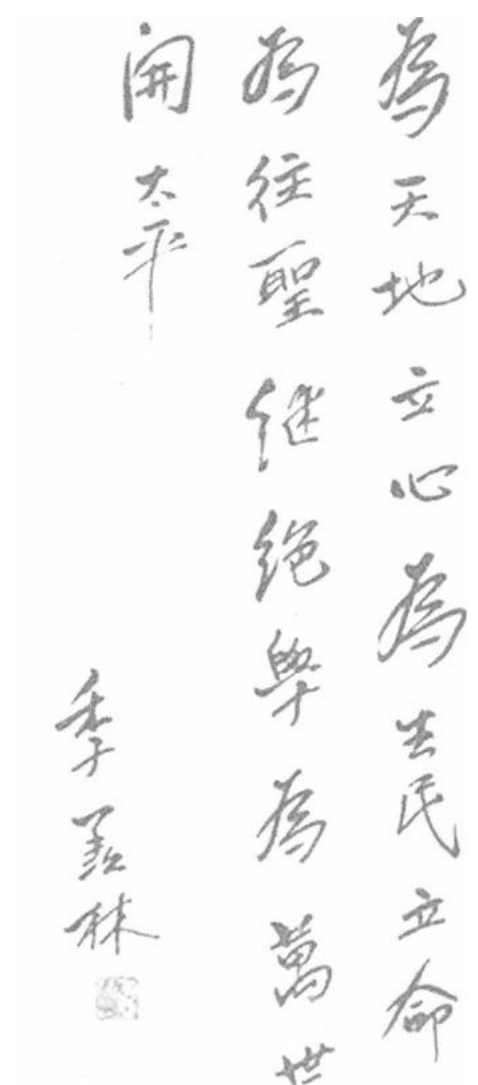 為天地立心為生民立命
為往聖继絕學為萬世
開太平
季羡林